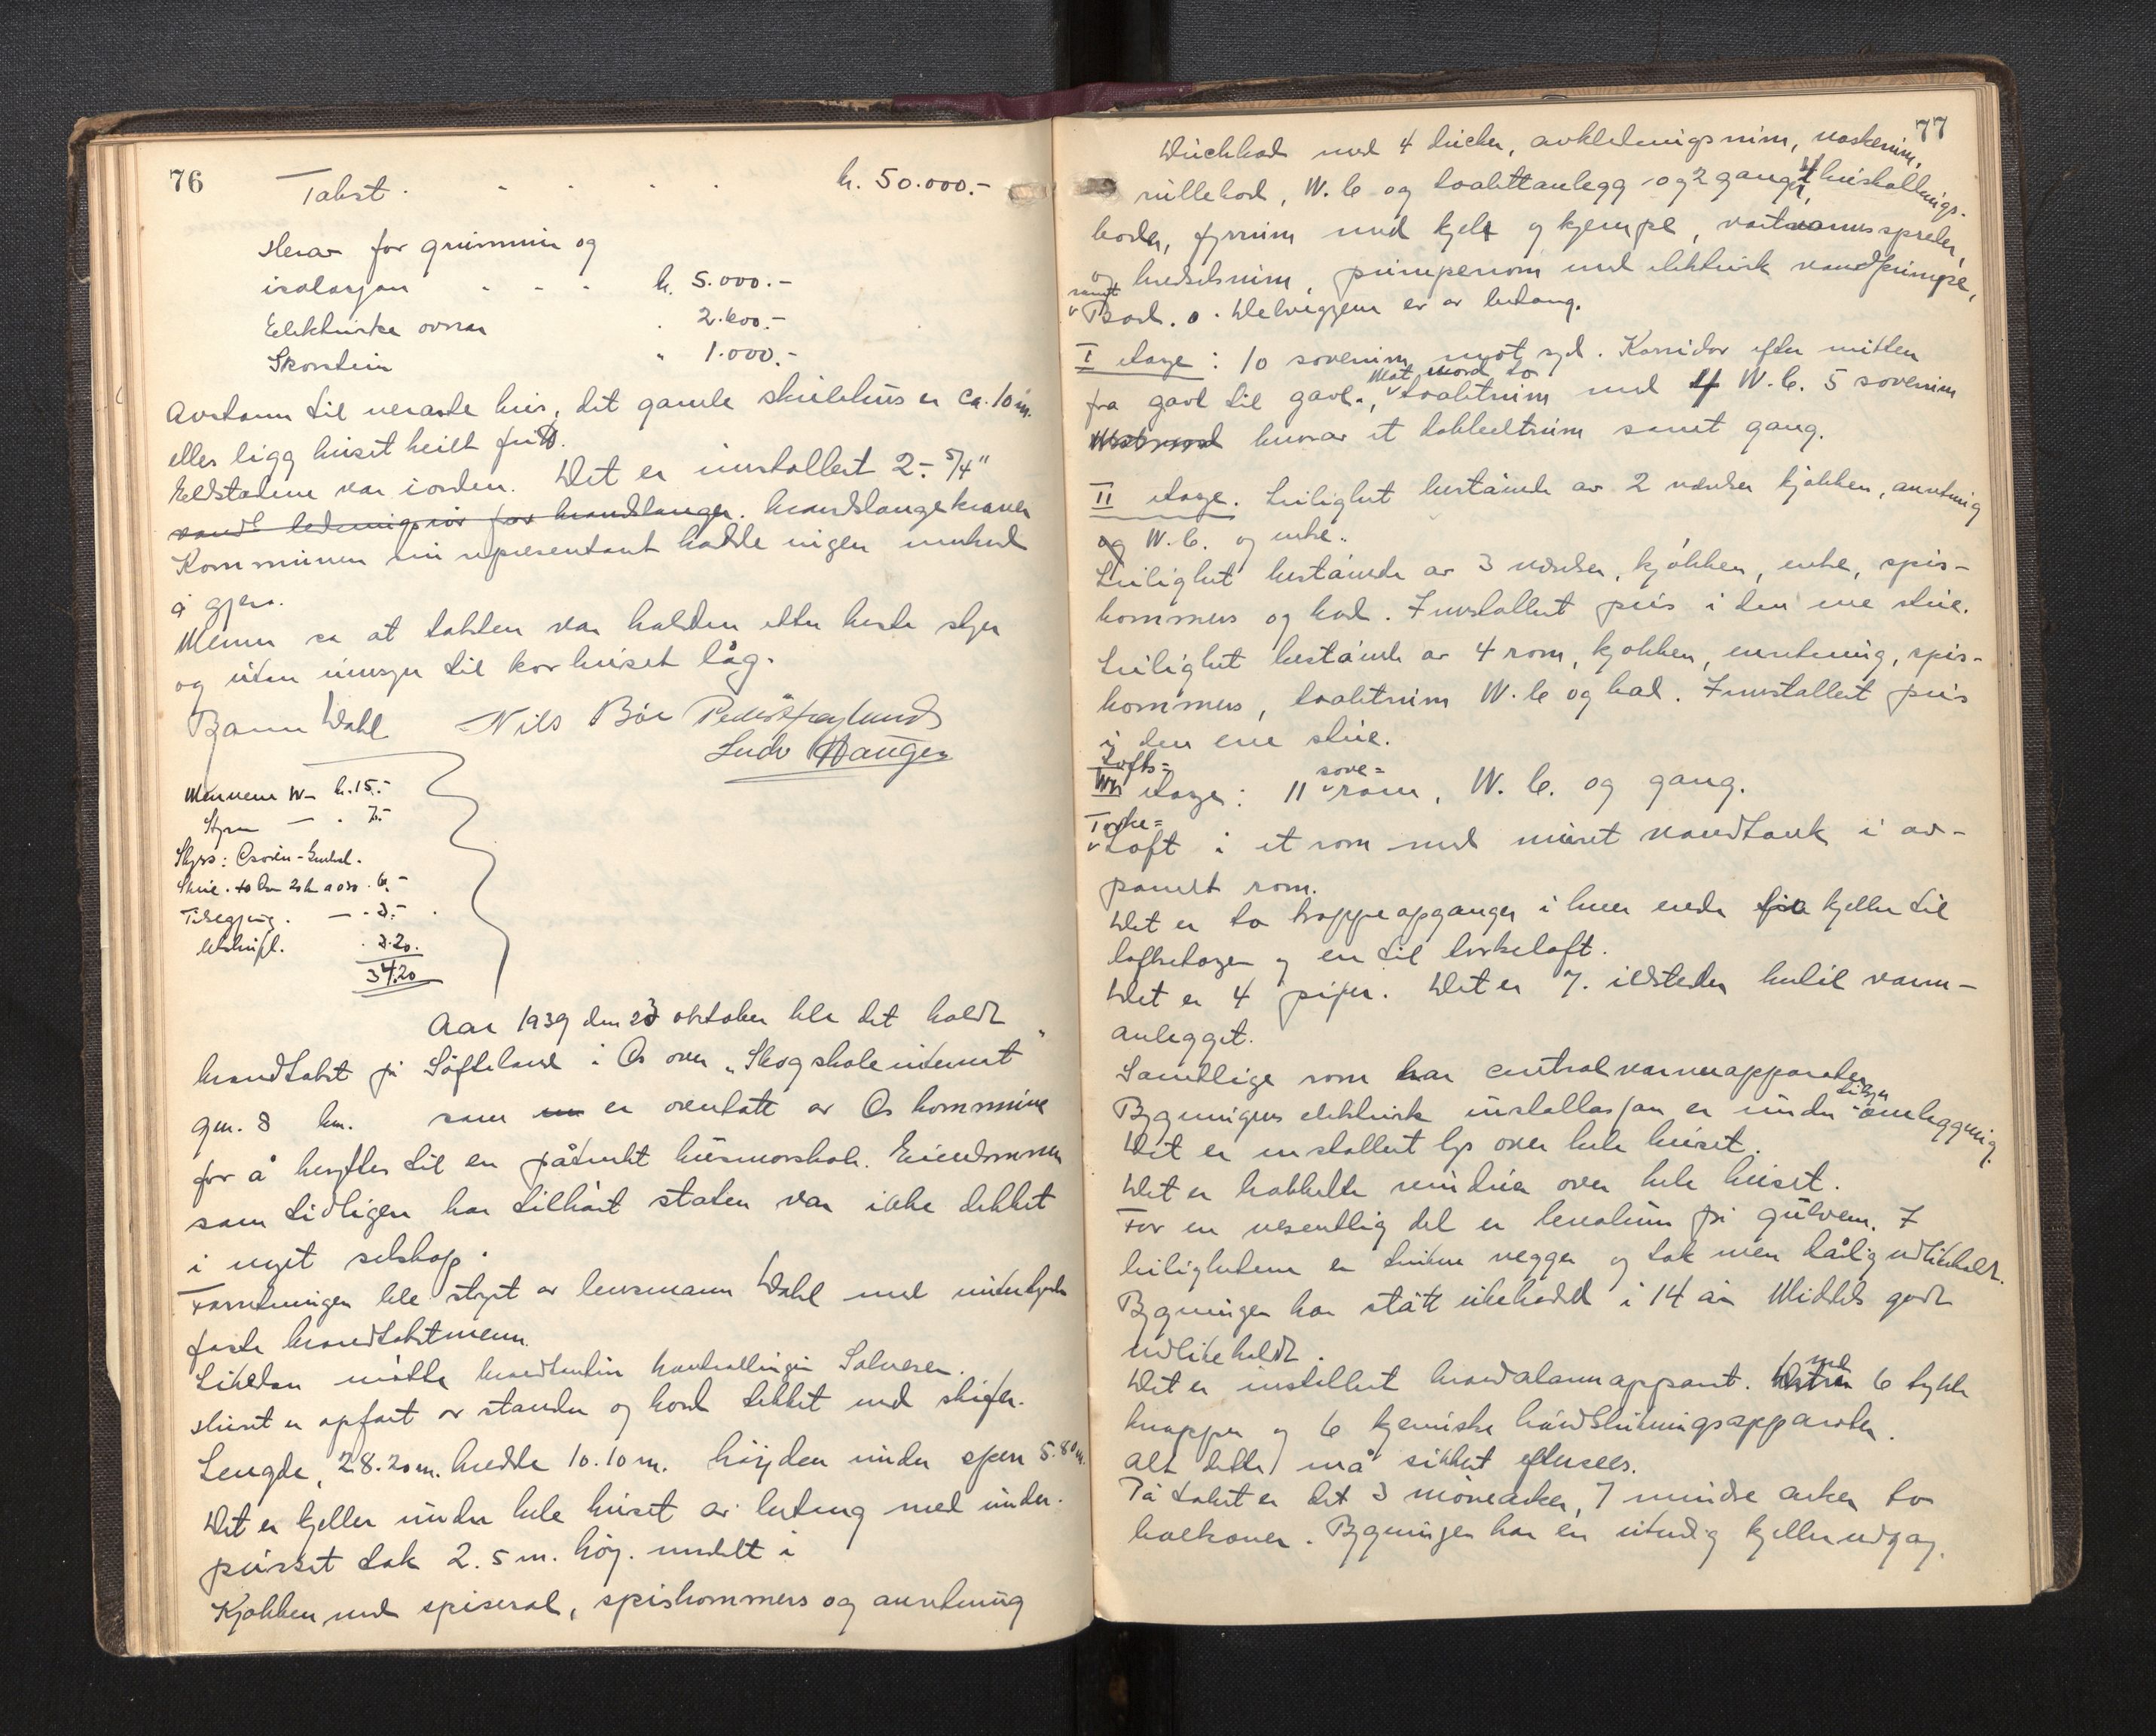 76
Takst . . . . . kr. 50.000.-
Herav for grunnmur og
isolasjon - - - kr. 5.000.-
Elektriske ovnar . 2.600.-
Skorstein " 1.000.-
Avstann til neraste hus, det gamle skulehus er ca. 10 m.
elles ligg huset heilt fritt.
Eldstadene var iorden. Det er innstallert 2 - 5/4"
vandt ledningsrör for brandslanger. brandslangekraner
Kommunen sin representant hadde ingen merknad
å gjera.
Menn sa at taksten var halden etter beste skjøn
og utan umsyn til kor huset låg.
Bjarne Dahl Nils Bøe Peder Haugland
Ludv Haugen
Mennene kr. 15.-
Styra — . 7.-
Skyss: Osøren -
. 6.-
Tilsegjing. — . 3.-
Utskrift. . 3.20.
34.20
Aar 1939 den 23 oktober ble det holdt
brandtakst på Søfteland i Os over „Skogskoleinternat"
gnr. 8 bnr. som er overtatt av Os kommune
for å benyttes til en påtenkt husmorskole. Eiendommen
som tidligere har tilhört staten var ikke dekket
i noget selskap.
Forretningen ble styrt av lensmann Dahl med undertegnede
faste brandtakstmenn.
Likedan møtte brandtaksten kontrollingeniør Salvesen.
Huset er opfört av stander og bord dekket med skifer.
Lengde, 28.20 m. bredde 10.10 m. höyden under spern 5.80 m.
Det er kjeller under hele huset av betong med under-
pusset tak 2.5 m. höy. inndelt i
Kjøkken med spisesal, spiskommers og anretning
77
Duchbad med 4 ducher, avkledningsrum, vaskerum,
rullebod, W.C og toalettanlegg og 2 ganger, 4 husholdnings-
boder, fyrrum med kjele og kjempe, vartvannsspreder,
og bredselsrum, pumperom med elektrisk vandpumpe,
samt Bad. Delveggene er av betong.
I etage: 10 soverum mot syd. Korridor efter mitten
fra gavl til gavl., Mot nord to toalettrum med 4 W.C. 5 soverum
Mot nord hvorav et dobbeltrum samt gang.
II etage. Leilighet bestående av 2 værelser kjøkken, anretning
og W.C. og entre.
Leilighet bestående av 3 værelser, kjøkken, entre, spis-
kommers og bad. Innstallert peis i den ene stue.
Leilighet bestående av 4 rom, kjøkken, anretning, spis-
kommers, toalettrum W.C og bad. Innstallert peis
i den ene stue.
Lofts=
etage: 11 sove= rom, W.C. og gang.
Törke=
Loft i et rom med muret vandtank i av-
panelt rom.
Det er to trappeopganger i hver ende fra kjeller til
loftsetagen og en til törkeloft.
Det er 4 piper. Det er 7. ildsteder hertil varm-
anlegget.
Samtlige rom har centralvarmeapparater
Bygningens elektrisk installasjon er under tilsyn omleggning.
Det er installert lys over hele huset.
Det er dobbelte vinduer over hele huset.
For en vesentlig del er linolium på gulvene. I
leilighetene er vegger og tak men dårlig vedlikeholdt.
Bygningen har stått ubebodd i 14 år Middels godt
vedlikeholdt.
Det er installert brandalarmapparat. med 6 trykk
knapper og 6 kjemiske håndslukningsapparater.
Alt dette må sikkert eftersees.
På taket er det 3 mönearker, 7 mindre arker to
balkoner. Bygningen har en utvendig kjellerudgang.